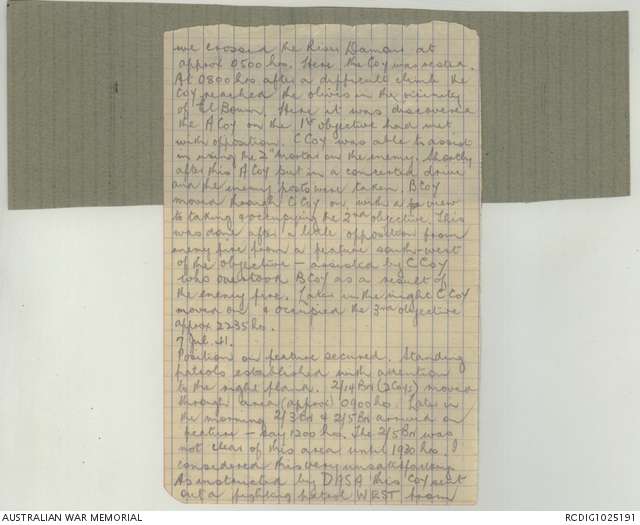 we crossed the River Damour at
approx 0500 hrs. Here the Coy was rested.
At 0800 hrs after a difficult climb the
Coy reached the olives in the vicinity
of El Boum. Here it was discovered
the A Coy on the 1st objective had met
with opposition. C Coy was able to assist
in using the 2" Mortar on the enemy. Shortly
after this A Coy put in a concerted drive
and the enemy posts were taken. B Coy
moved through C Coy on with a view
to taking & occupying the 2nd objective. This
was done after a little opposition from
enemy fire from a feature south-west
of the objective - assisted by C Coy
who B Coy as a result of
the enemy fire. Later in the night C Coy
moved on & occupied the 3rd objective
approx 2235 hrs.
7 Jul. 41.
Position on feature secured. Standing
patrols established with attention
to the right flank. 2/14 Bn (2 Coys) moved
through area (approx) 0900 hrs. Later in
the morning 2/3 Bn & 2/5 Bn arrived on
feature - say 1200 hrs. The 2/5 Bn was
not clear of this area until 1930 hrs. I
considered this very unsatisfactory.
As instructed by this Coy sent
out a fighting patrol WEST from
AUSTRALIAN WAR MEMORIAL
RCDIG1025191